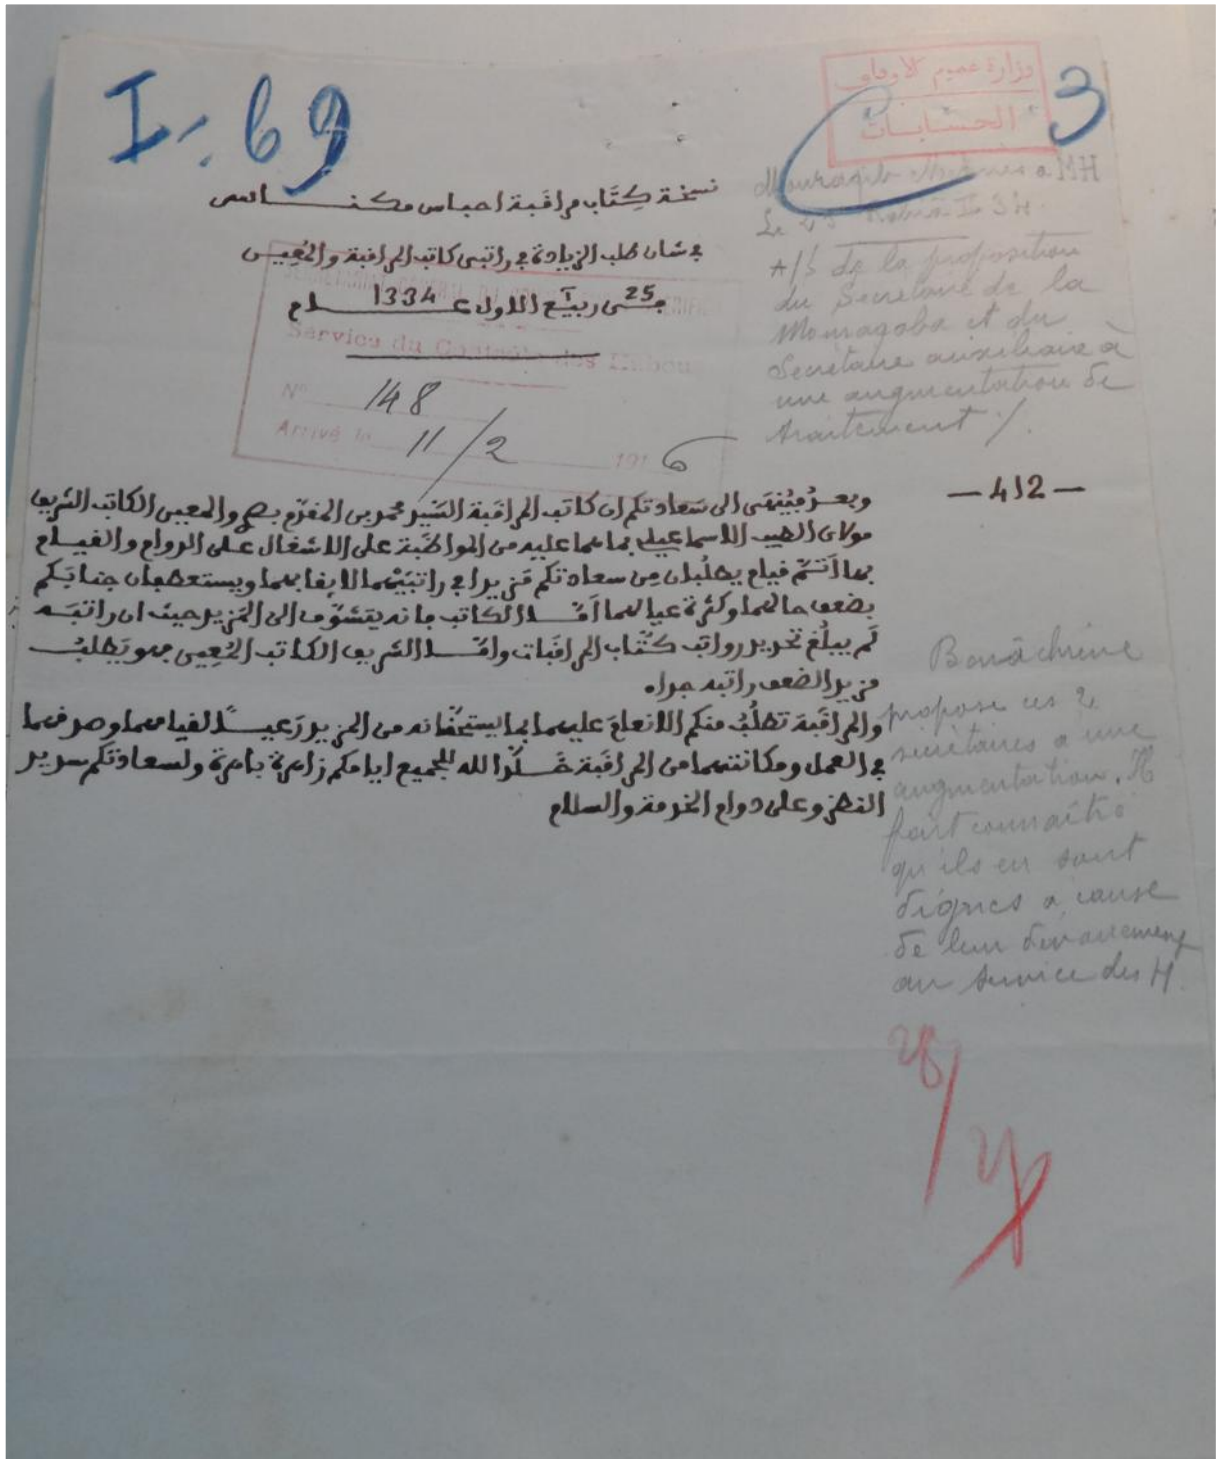 I. 69
3
وزارة عموم الاوقاف
الحسابات
Mouraqib Meknès à MH
Le 25 Rabia I 34.
A/S de la proposition
du Secrétaire de la
Mouraqaba et du
Secrétaire auxiliaire à
une augmentation de
traitement /.
نسخة كِتَاب مراقَبة احباس مكناس
في شان طلب الزيادة في راتبى كاتب المراقبة والمُعِين
في 25 ربيع I الاول عام 1334
Service du Contrôle des Habous
N° 148
Arrivé le 11/2 1916
— 412 —
وبعد فيُنهَى الى سَعادتكم ان كاتب المراقَبة السَّيد محمد بن المفدّم بصح والمعين الكاتب الشريف
مولاى الطيب الاسماعيلي بما هما عليه من المواظَبة على الاشغال على الدوام والقيام
بها اَتَمّ قيام يطلُبان مِن سعادتكم مَزيدا في راتبَيْهما لايفا بهما ويستعطفان جنابَكم
بضعف حالهما وكثرة عيالهما اَمّا الكاتب فانه يتشوّف الى المَزيد حيث ان راتبَه
لَم يبلُغ تحديد رواتب كُتّاب المراقَبات وامّا الشريف الكاتب المُعِين فهو يَطلبُ
مزيد الضعف راتبه جدا
والمراقَبة تطلُبُ منكم الانعامَ عليهما بما يستحقّانه من المزيد رَعيًا لقيامهما وصدقهما
في العمل ومكانتهما من المراقَبة خَلّد الله للجميع ايامكم زاهرة باهرة ولسعادتكم سديد
النظر وعلى دوام الخدمة والسلام
Benâchrine
propose ces 2
secrétaires à une
augmentation. Il
fait connaître
qu'ils en sont
dignes à cause
de leur dévouement
au service des H.